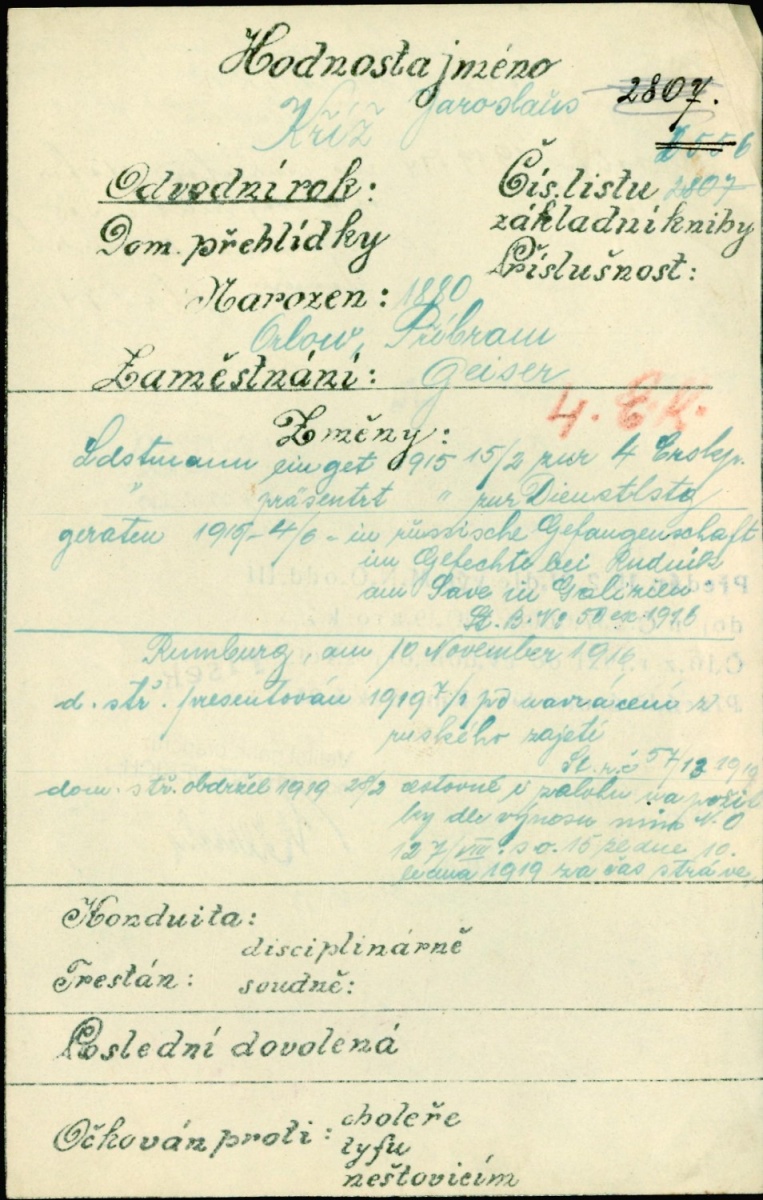 Hodnost a jméno
2807.
Kříž Jaroslaus
2556
Odvodní rok:
Čís. listu 2807
Dom. přehlídky
základní knihy
Příslušnost:
Narozen: 1880
Orlow, Přibram
Zaměstnání: Geiser
4. E.K.
Změny:
Ldstmann einget 915 15/2 zur 4 Erskp.
" präsentrt " zur Dienstlstg
geraten 1915 - 4/6 - in russische Gefangenschaft
im Gefechte bei Rudnik
am Save in Galizien
St. B. No 50 ex 1916
Rumburg, am 10 November 1916
d. stř. presentován 1919 7/1 po navrácení z
ruského zajetí
St. r. č 57/13 1919
dom. stř. obdržel 1919 28/2 cestovné i zálohu na požit
ky dle výnosu min N.O
127/VIII. s o. 15 ze dne 10.
ledna 1919 za čas stráve
Konduita:
disciplinárně
Trestán: soudně:
Poslední dovolená
Očkován proti: choleře
tyfu
neštovicím